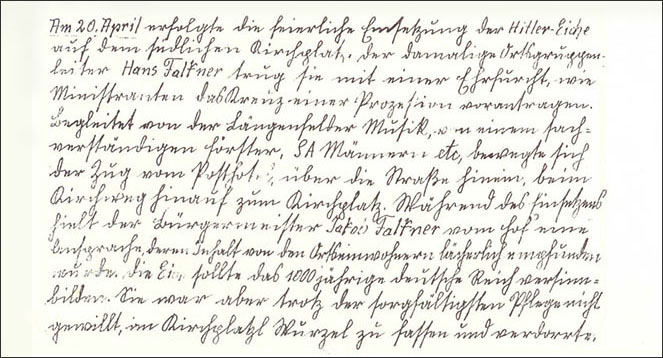 Am 20. April erfolgte die feierliche Einsetzung der Hitler-Eiche
auf dem südlichen Kirchplatz, der damalige Ortsgruppen-
leiter Hans Falkner trug sie mit einer Ehrfurcht, wie
Ministranten das Kreuz einer Prozession vorantragen.
Begleitet von der Längenfelder Musik, von einem sach-
verständigen Förster, SA Männern etc, bewegte sich
der Zug vom Posthotel, über die Straße hinein, beim
Kirchweg hinauf zum Kirchplatz. Während des Einsetzens
hielt der Bürgermeister Falkner vom Hof eine
Ansprache, deren Inhalt von den Ortseinwohnern lächerlich empfunden
wurde. Die Eiche sollte das 1000 jährige deutsche Reich versinn-
bilden. Sie war aber trotz der sorgfältigsten Pflege nicht
gewillt, im Kirchplatzl Wurzel zu fassen und verdorrte.